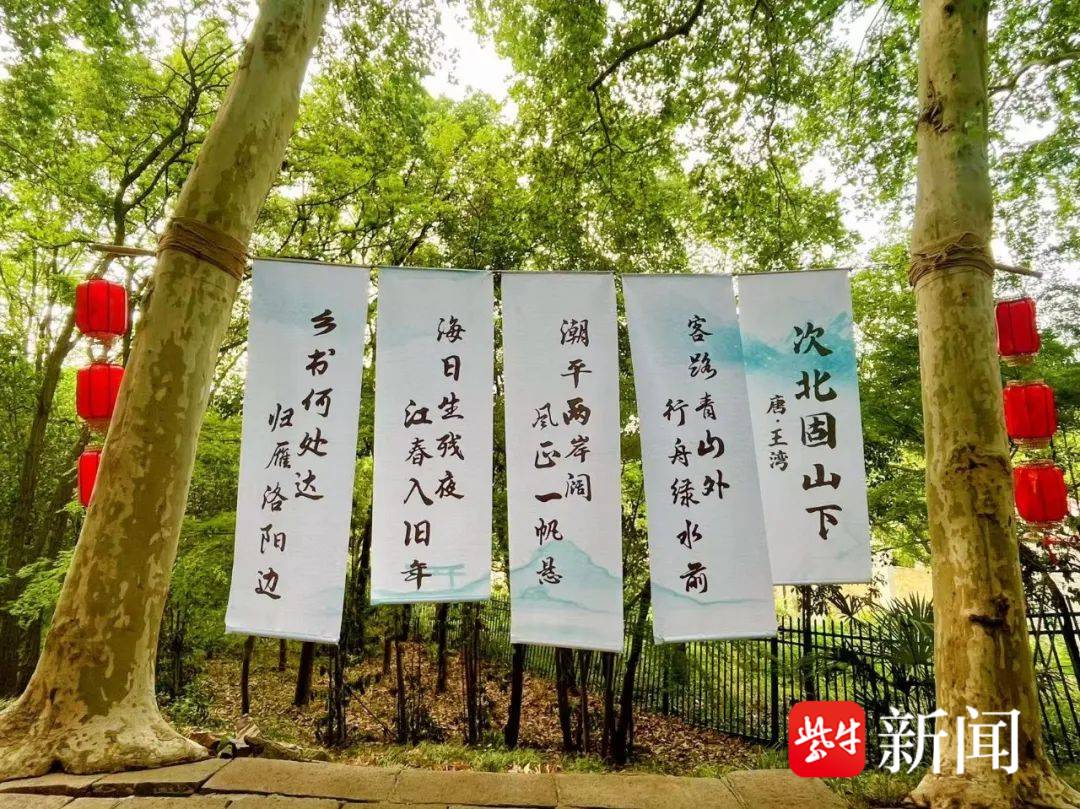 次北固山下
唐·王湾
客路青山外
行舟绿水前
潮平两岸阔
风正一帆悬
海日生残夜
江春入旧年
乡书何处达
归雁洛阳边
紫牛新闻